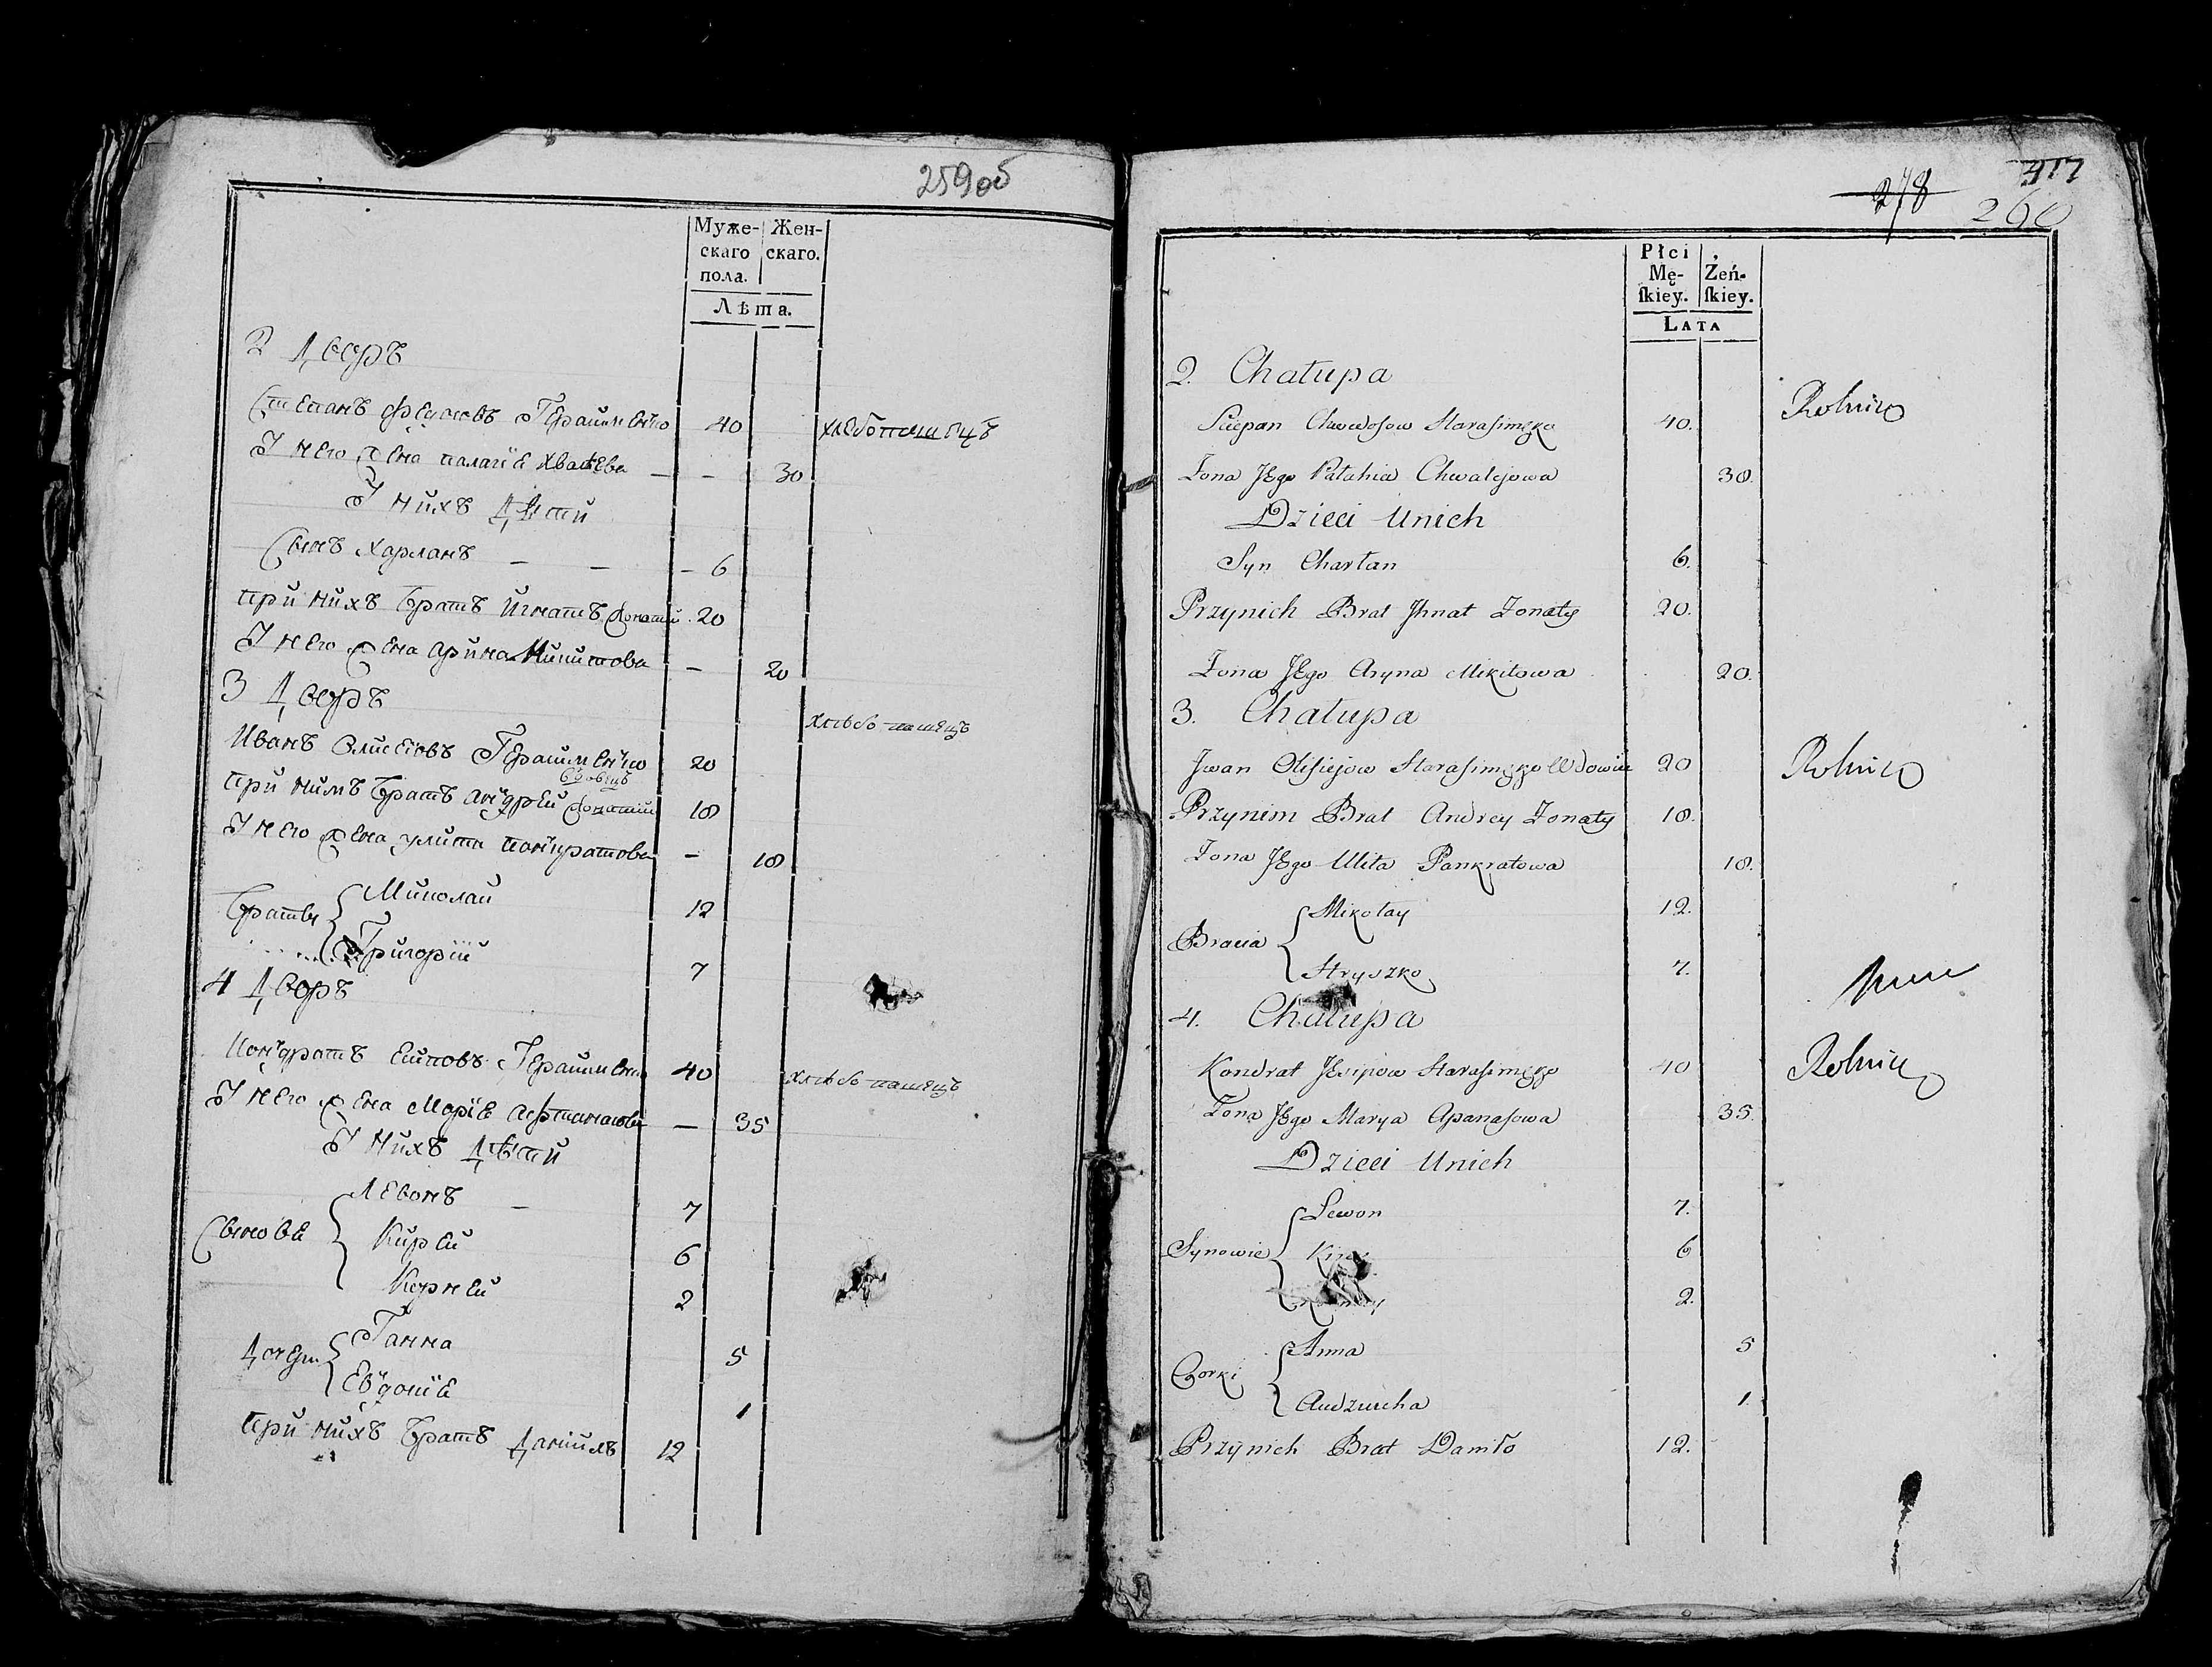 259 об
Муже-
скаго
пола.
Жен-
скаго.
Лѣта.
2 Дворъ
Степанъ Федосовъ Герасименко 40 хлебопашецъ
У него жена палагія Хвалѣева — — 30
У нихъ Дѣти
Сынъ Харланъ — — — 6
при нихъ братъ Игнатъ женатій 20
У него жена арина Микитова — 20
3 Дворъ
хлѣбопашецъ
Иванъ Олисеовъ Герасименко 20
вдовецъ
при нимъ братъ андрей женатій 18
У него жена улита панкратова — 18
браты { Миколай 12
Григорій 7
4 Дворъ
Кондратъ Есиповъ Герасименко 40 хлѣбопашецъ
У него жена Марія Афтанасова — 35
У нихъ Дѣти
Сынове { Левонъ — 7
Кирей 6
Корней 2
Дочери { Ганна 5
Евдокія 1
при нихъ братъ Данилъ 12
417
278
260
Płci
Mę-
ſkiey.
Żeń-
ſkiey.
LATA
2. Chałupa
Sciepan Chwedosow Harasimęko 40. Rolnik
Zona Jego Pałahia Chwalejowa 30.
Dzieci Unich
Syn Charłan 6.
Przynich Brat Jhnat Zonaty 20.
Zona Jego Aryna Mikitowa 20.
3. Chałupa
Jwan Olisiejow Harasimęko Wdowiec 20 Rolnik
Przynim Brat Andrey Zonaty 18.
Zona Jego Ulita Pankratowa 18.
Bracia { Mikołay 12.
Hryszko 7.
4. Chałupa
Kondrat Jesipow Harasimęko 40 Rolnik
Zona Jego Marya Apanasowa 35.
Dzieci Unich
Synowie { Lewon 7.
6
2.
Corki { Anna 5
Audziucha 1
Przynich Brat Daniło 12.